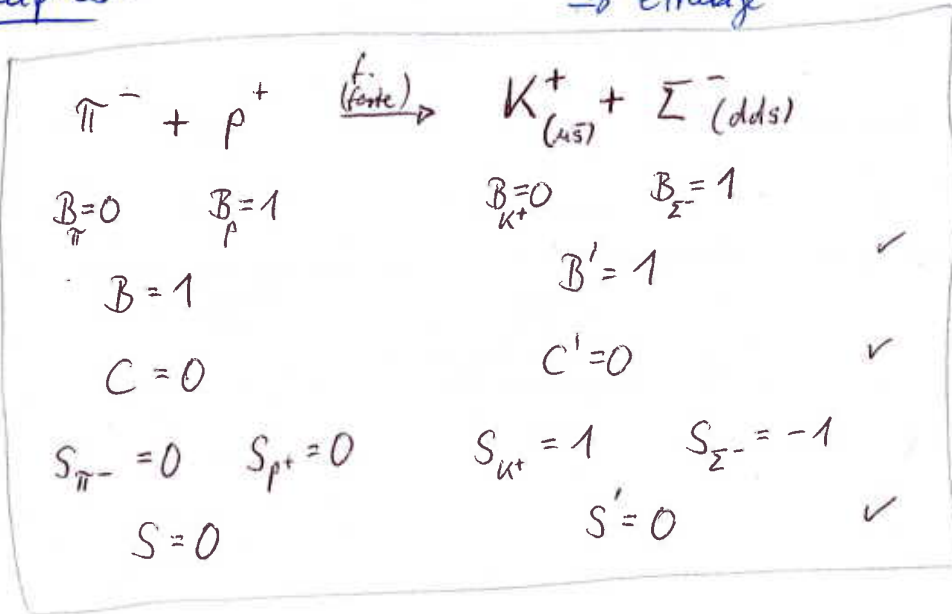 π⁻ + p⁺ f. (forte) → K⁺ (us̄) + Σ⁻ (dds)
B_π=0 B_p=1 B_K⁺=0 B_Σ⁻=1
B = 1 B' = 1 ✓
C = 0 C' = 0 ✓
S_π⁻ = 0 S_p⁺ = 0 S_K⁺ = 1 S_Σ⁻ = -1
S = 0 S' = 0 ✓